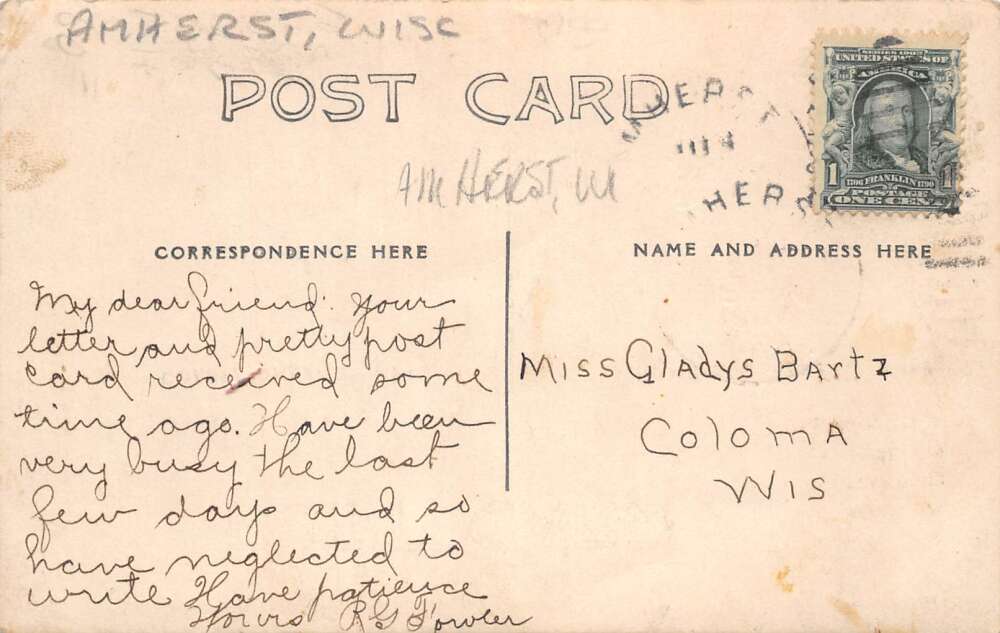 AMHERST, WISC
POST CARD
SERIES 1902
UNITED STATES OF
AMERICA
1 1706 FRANKLIN 1790 1
POSTAGE
ONE CENT
AMHERST, WI
CORRESPONDENCE HERE
My dear friend: Your
letter, and pretty post
card received some
time ago. Have been
very busy the last
few days and so
have neglected to
write Have patience
Yours R G Fowler
NAME AND ADDRESS HERE
Miss Gladys Bartz
Coloma
Wis